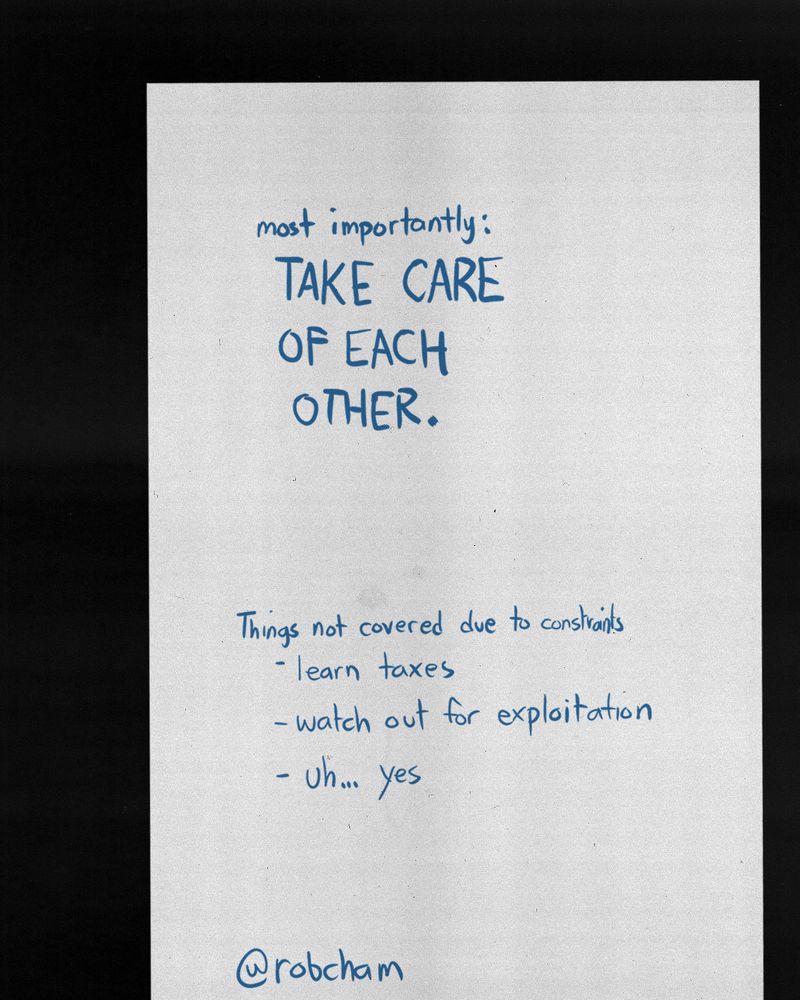 most importantly:
TAKE CARE
OF EACH
OTHER.
Things not covered due to constraints
- learn taxes
- watch out for exploitation
- uh... yes
@robcham